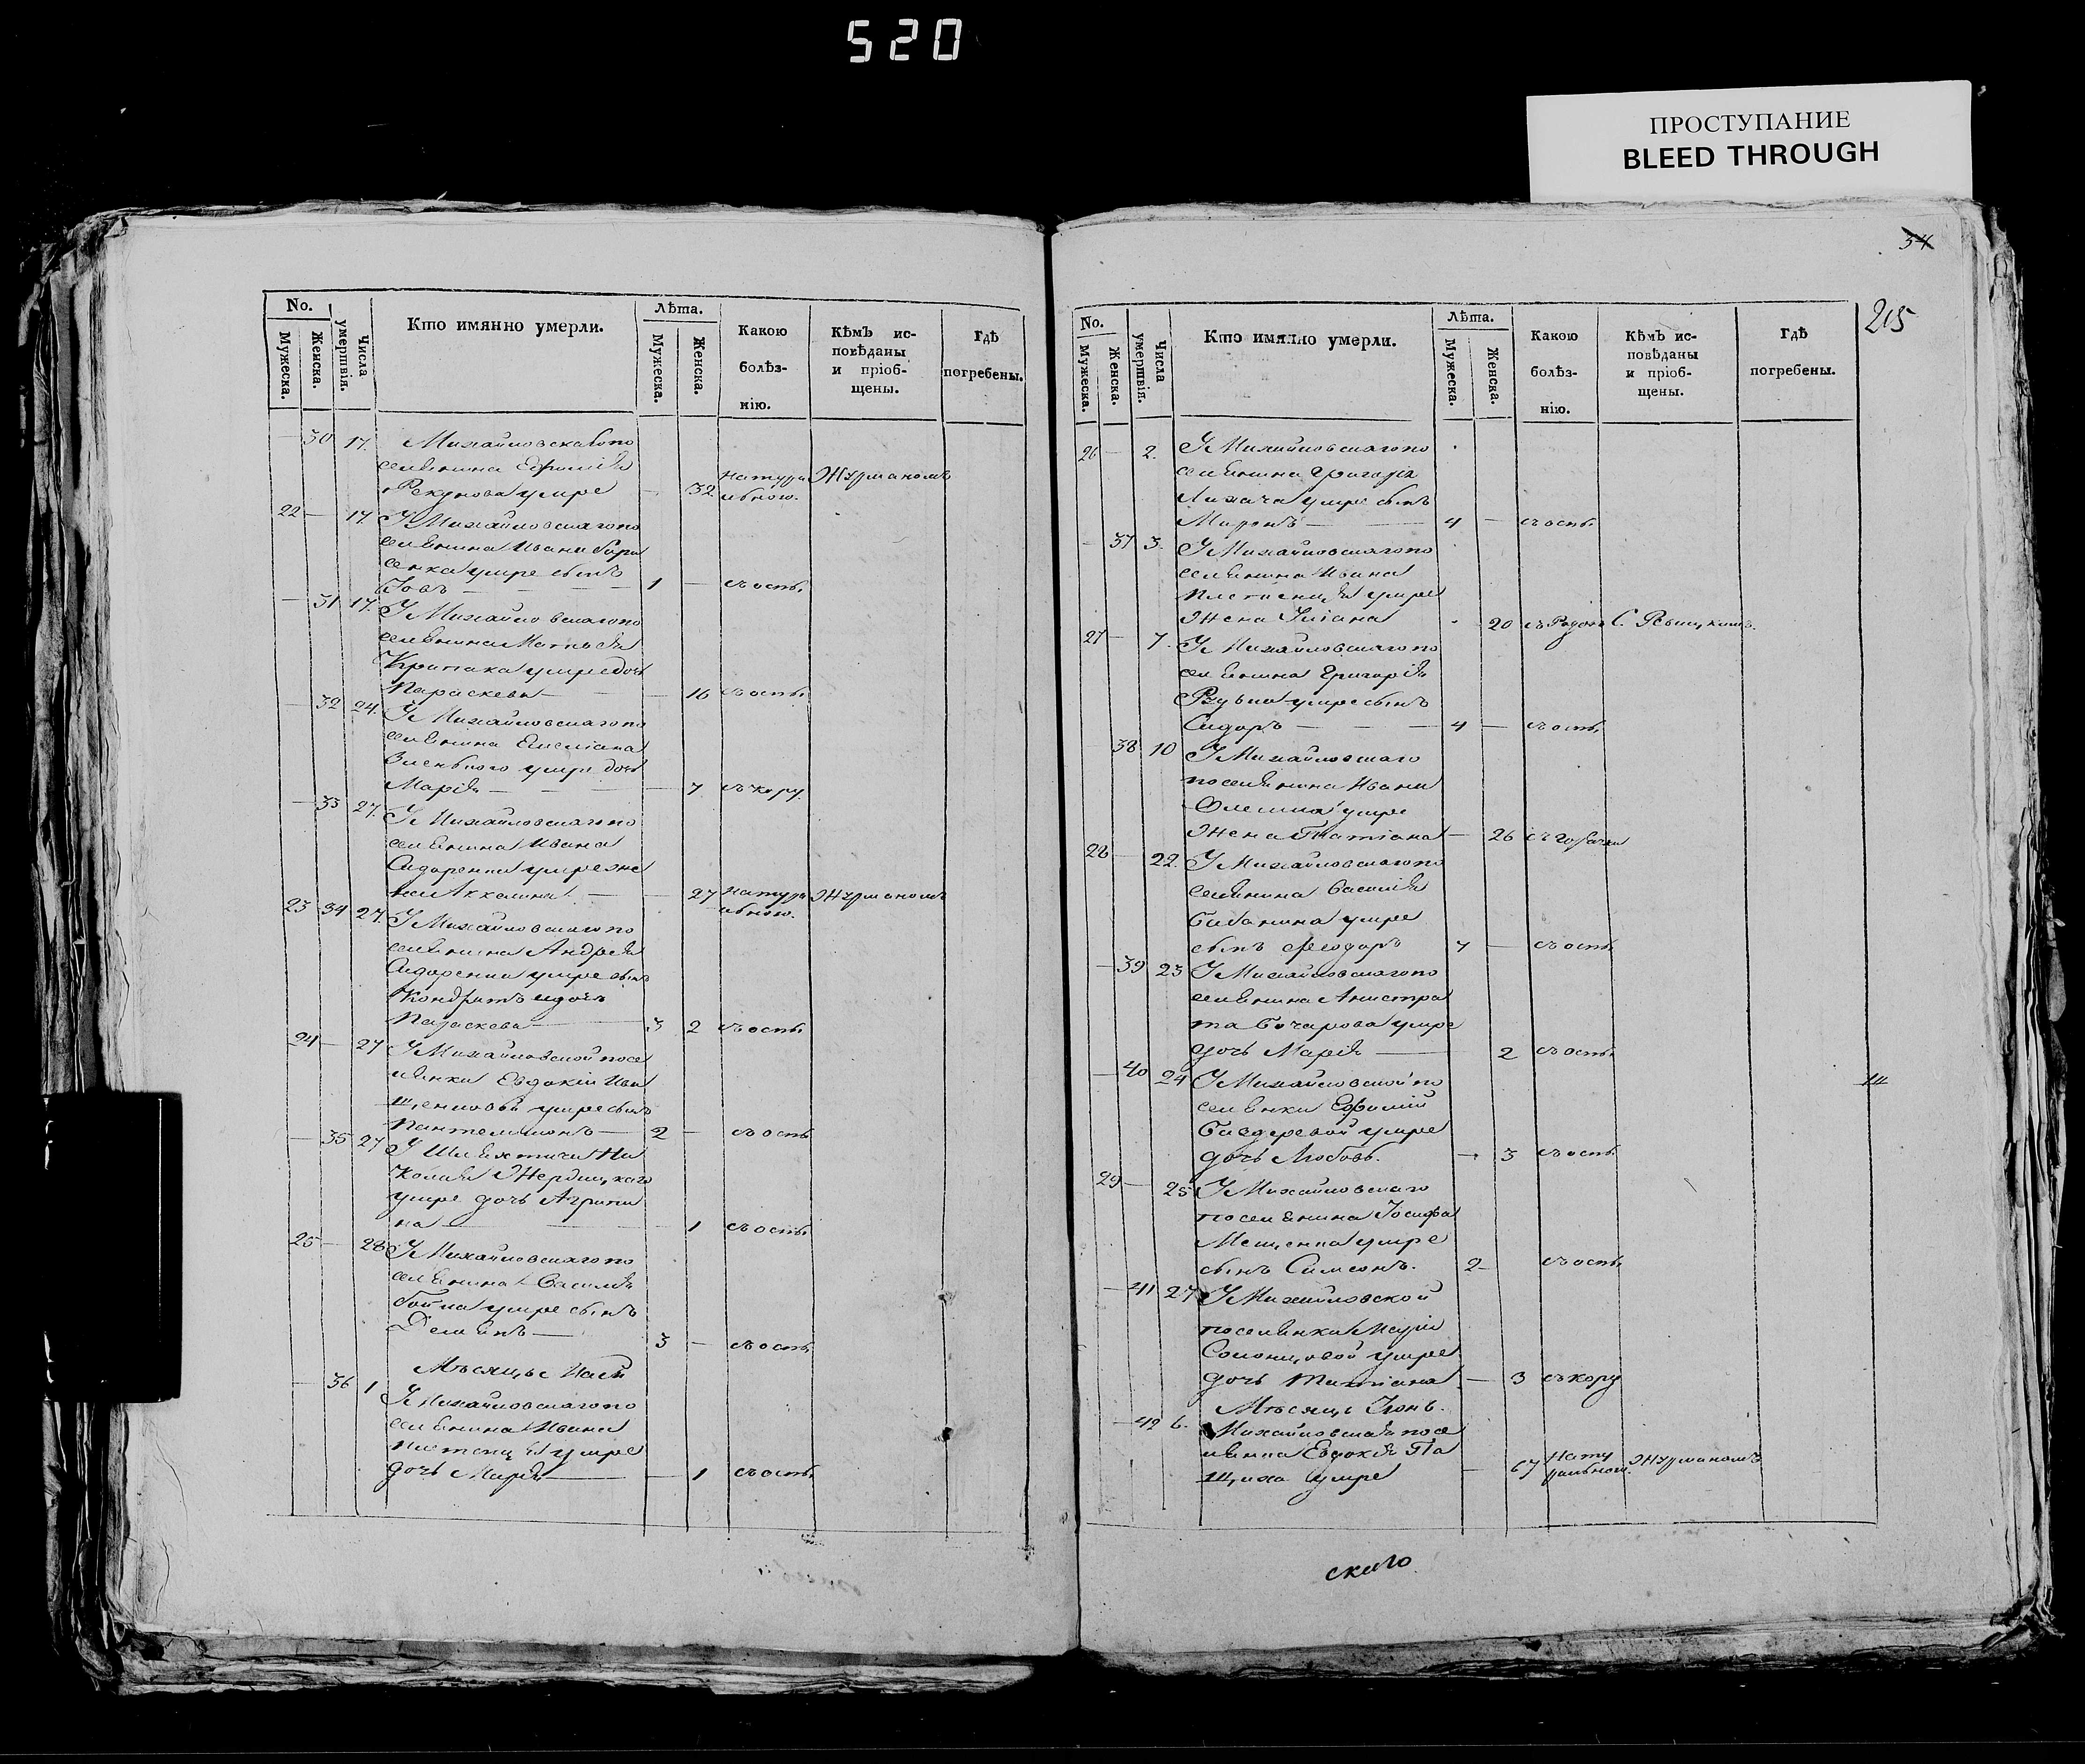 520
ПРОСТУПАНИЕ
BLEED THROUGH
No.
Мужеска.
Женска.
Числа умертвія.
Кто имянно умерли.
Лѣта.
Мужеска.
Женска.
Какою болѣз-нію.
Кѣмъ ис-повѣданы и пріоб-щены.
Гдѣ погребены.
30 17. Михайловскаго по
селянина Ефросинія
умре — 32 натура Журманомъ
льною.
22 — 17 У Михайловскаго по
селянина Ивана Бори
сенка умре сынъ
Іовъ — 1 — съ оспы
— 31 17. У Михайловскаго по
селянина Матвѣя
Крипака умре дочь
Параскева — — 16 съ оспы
— 32 24. У Михайловскаго по
селянина Емеліана
умре дочь
Марія — — 7 съ кору.
— 33 27. У Михайловскаго по
селянина Ивана
Сидоренка умре же
на Акилина — — 27 натура Журманомъ
льною.
23 34 27. У Михайловскаго по
селянина Андрея
Сидоренка умре сынъ
Кондратъ и дочь
Параскева — 3 2 съ оспы
24 — 27 У Михайловской посе
лянки Евдокіи Ива
щенковой умре сынъ
Пантелимонъ — 2 — съ оспы
— 35 27 У Шляхтича Ни
колая Жердицкаго
умре дочь Агрипи
на — 1 съ оспы
25 — 28 У Михайловскаго по
селянина Василія
Бойка умре сынъ
Демянъ — 3 — съ оспы
Мѣсяцъ Май
— 36 1 У Михайловскаго по
селянина Ивана
умре
дочь Марія — — 1 съ оспы
34
215
No.
Мужеска.
Женска.
Числа умертвія.
Кто имянно умерли.
Лѣта.
Мужеска.
Женска.
Какою болѣз-нію.
Кѣмъ ис-повѣданы и пріоб-щены.
Гдѣ погребены.
26 — 2. У Михайловскаго по
селянина Григорія
Лихача умре сынъ
Миронъ — 4 — съ оспы
— 37 3. У Михайловскаго по
селянина Ивана
умре
жена Уліана 20 съ Родовъ С.
27 — 7. У Михайловскаго по
селянина Григорія
умре сынъ
Сидоръ — 4 — съ оспы
38 10 У Михайловскаго
поселянина Ивана
умре
жена Татіана — 26 съ горячки
28 — 22. У Михайловскаго по
селянина Василія
умре
сынъ Феодоръ 7 — съ оспы
— 39 23 У Михайловскаго по
селянина Анистра
та Бочарова умре
дочь Марія — 2 съ оспы
— 40 24 У Михайловской по
селянки Ефросиніи
умре
дочь Любовь. — 3 съ оспы
29 — 25 У Михайловскаго
поселянина Іосифа
Мащенка умре
сынъ Симеонъ. 2 — съ оспы
— 41 27 У Михайловской
поселянки Маріи
Солонцовой умре
дочь Татіана — 3 съ кору
Мѣсяцъ Іюнь.
— 42 6. Михайловская посе
лянка Евдокія Па
щиха умре — 67 Нату Журманомъ
ральною.
скаго